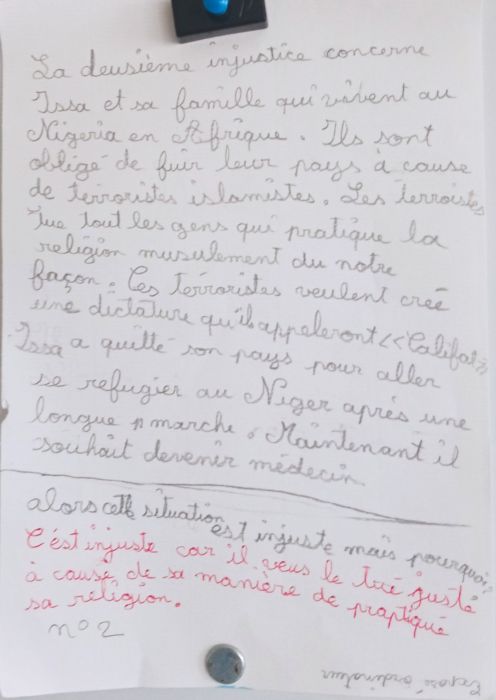 La deusième injustice concerne
Issa et sa famille qui vivent au
Nigeria en Afrique. Ils sont
obligé de fuir leur pays à cause
de terroristes islamistes. Les terroistes
tue tout les gens qui pratique la
religion musulement du notre
façon. Ces terroristes veulent creé
une dictature qu'ils appeleront << Califat >>
Issa a quitté son pays pour aller
se refugier au Niger après une
longue marche. Maintenant il
souhait devenir médecin
alors cette situation est injuste mais pourquoi?
C'est injuste car il veus le tué juste
à cause de sa manière de praptiqué
sa religion.
n°2
Exposé ordinateur